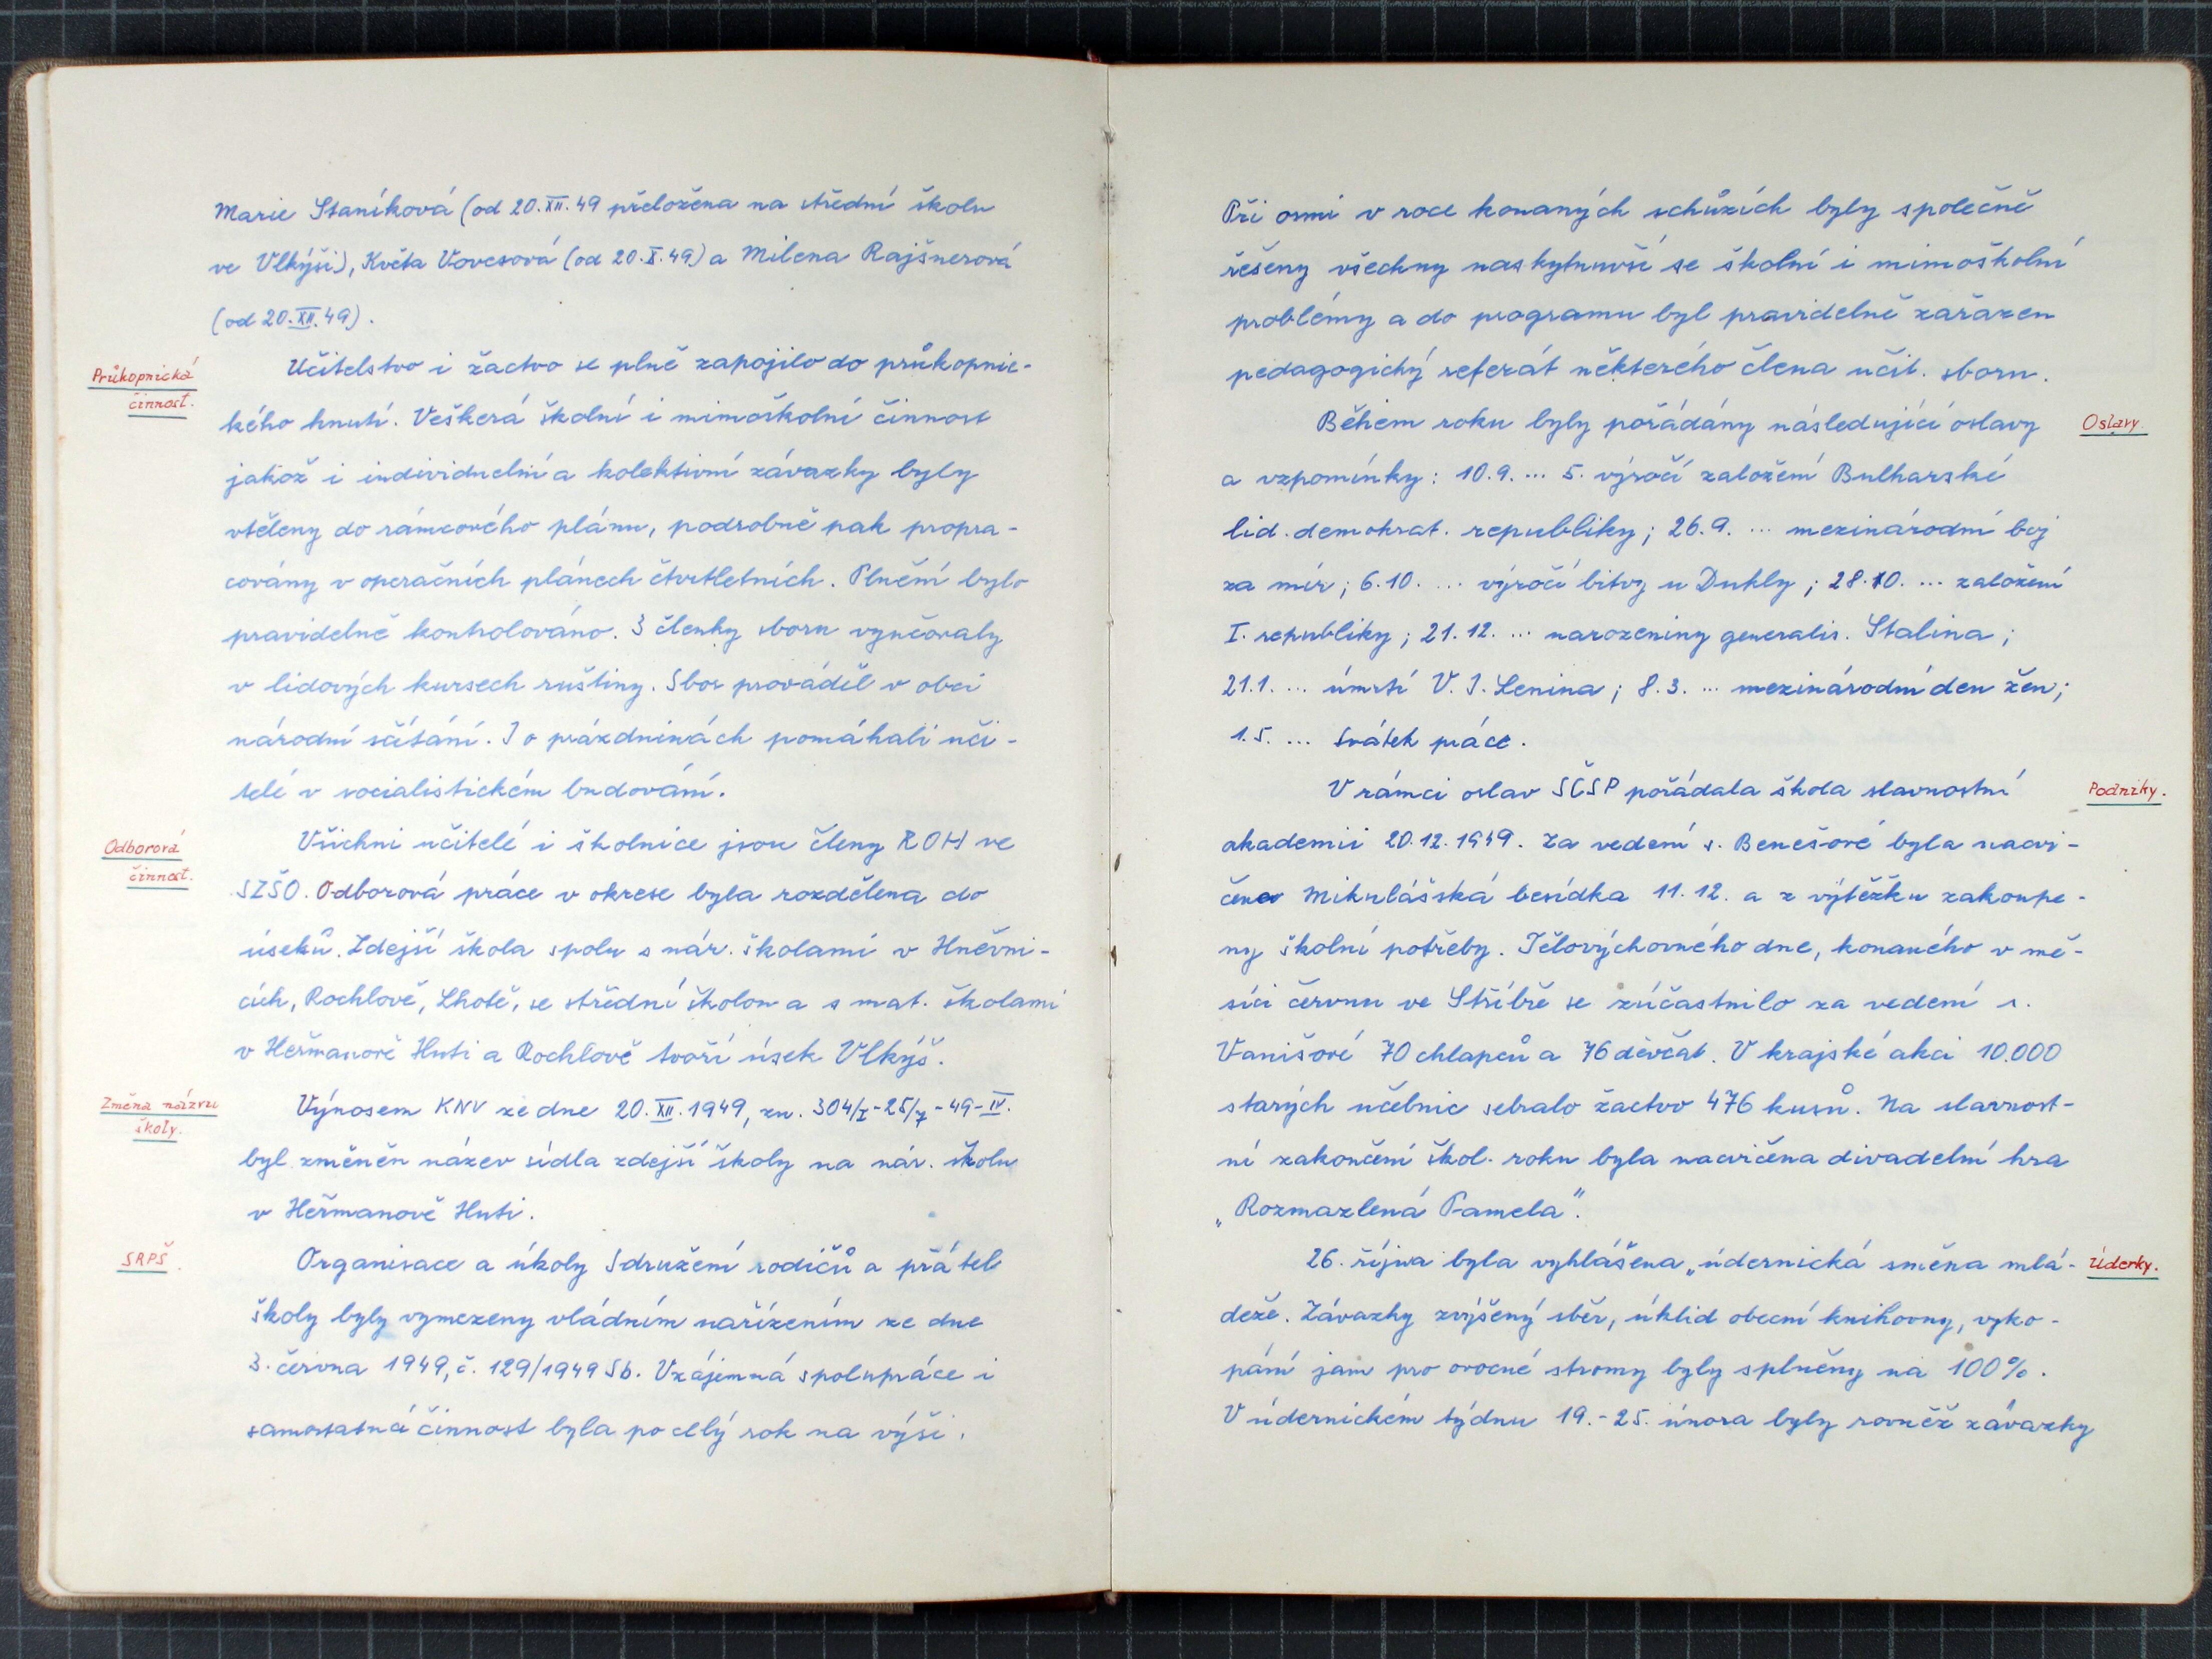 Marie Staníková (od 20.XII.49 přeložena na střední školu
ve Vlkýši), Květa Vovesová (od 20.X.49) a Milena Rajšnerová
(od 20.XII.49).
Průkopnická
činnost.
Učitelstvo i žactvo se plně zapojilo do průkopnic-
kého hnutí. Veškerá školní i mimoškolní činnost
jakož i individuelní a kolektivní závazky byly
vtěleny do rámcového plánu, podrobně pak propra-
covány v operačních plánech čtvrtletních. Plnění bylo
pravidelně kontrolováno. 3 členky sboru vyučovaly
v lidových kursech ruštiny. Sbor prováděl v obci
národní sčítání. I o prázdninách pomáhali uči-
telé v socialistickém budování.
Odborová
činnost.
Všichni učitelé i školnice jsou členy ROH ve
SZŠO. Odborová práce v okrese byla rozdělena do
úseků. Zdejší škola spolu s nár. školami v Hněvni-
cích, Rochlově, Lhotě, se střední školou a s mat. školami
v Heřmanově Huti a Rochlově tvoří úsek Vlkýš.
Změna názvu
školy.
Výnosem KNV ze dne 20.XII.1949, zn. 304/I-25/7-49-IV.
byl změněn název sídla zdejší školy na nár. školu
v Heřmanově Huti.
SRPŠ.
Organisace a úkoly Sdružení rodičů a přátel
školy byly vymezeny vládním nařízením ze dne
3. června 1949, č. 129/1949 Sb. Vzájemná spolupráce i
samostatná činnost byla po celý rok na výši.
Při osmi v roce konaných schůzích byly společně
řešeny všechny naskytnuvší se školní i mimoškolní
problémy a do programu byl pravidelně zařazen
pedagogický referát některého člena učit. sboru.
Během roku byly pořádány následující oslavy
Oslavy.
a vzpomínky: 10.9. ... 5. výročí založení Bulharské
lid. demokrat. republiky; 26.9. ... mezinárodní boj
za mír; 6.10. ... výročí bitvy u Dukly; 28.10. ... založení
I. republiky; 21.12. ... narozeniny generalis. Stalina;
21.1. ... úmrtí V. I. Lenina; 8.3. ... mezinárodní den žen;
1.5. ... Svátek práce.
V rámci oslav SČSP pořádala škola slavnostní
Podniky.
akademii 20.12.1949. Za vedení s. Benešové byla nacvi-
čena Mikulášská besídka 11.12. a z výtěžku zakoupe-
ny školní potřeby. Tělovýchovného dne, konaného v mě-
síci červnu ve Stříbře se zúčastnilo za vedení s.
Vanišové 70 chlapců a 76 děvčat. V krajské akci 10.000
starých učebnic sebralo žactvo 476 kusů. Na slavnost-
ní zakončení škol. roku byla nacvičena divadelní hra
„Rozmazlená Pamela".
26. října byla vyhlášena „údernická směna mlá-
Úderky.
deže. Závazky zvýšený sběr, úklid obecní knihovny, vyko-
pání jam pro ovocné stromy byly splněny na 100%.
V údernickém týdnu 19.-25. února byly rovněž závazky